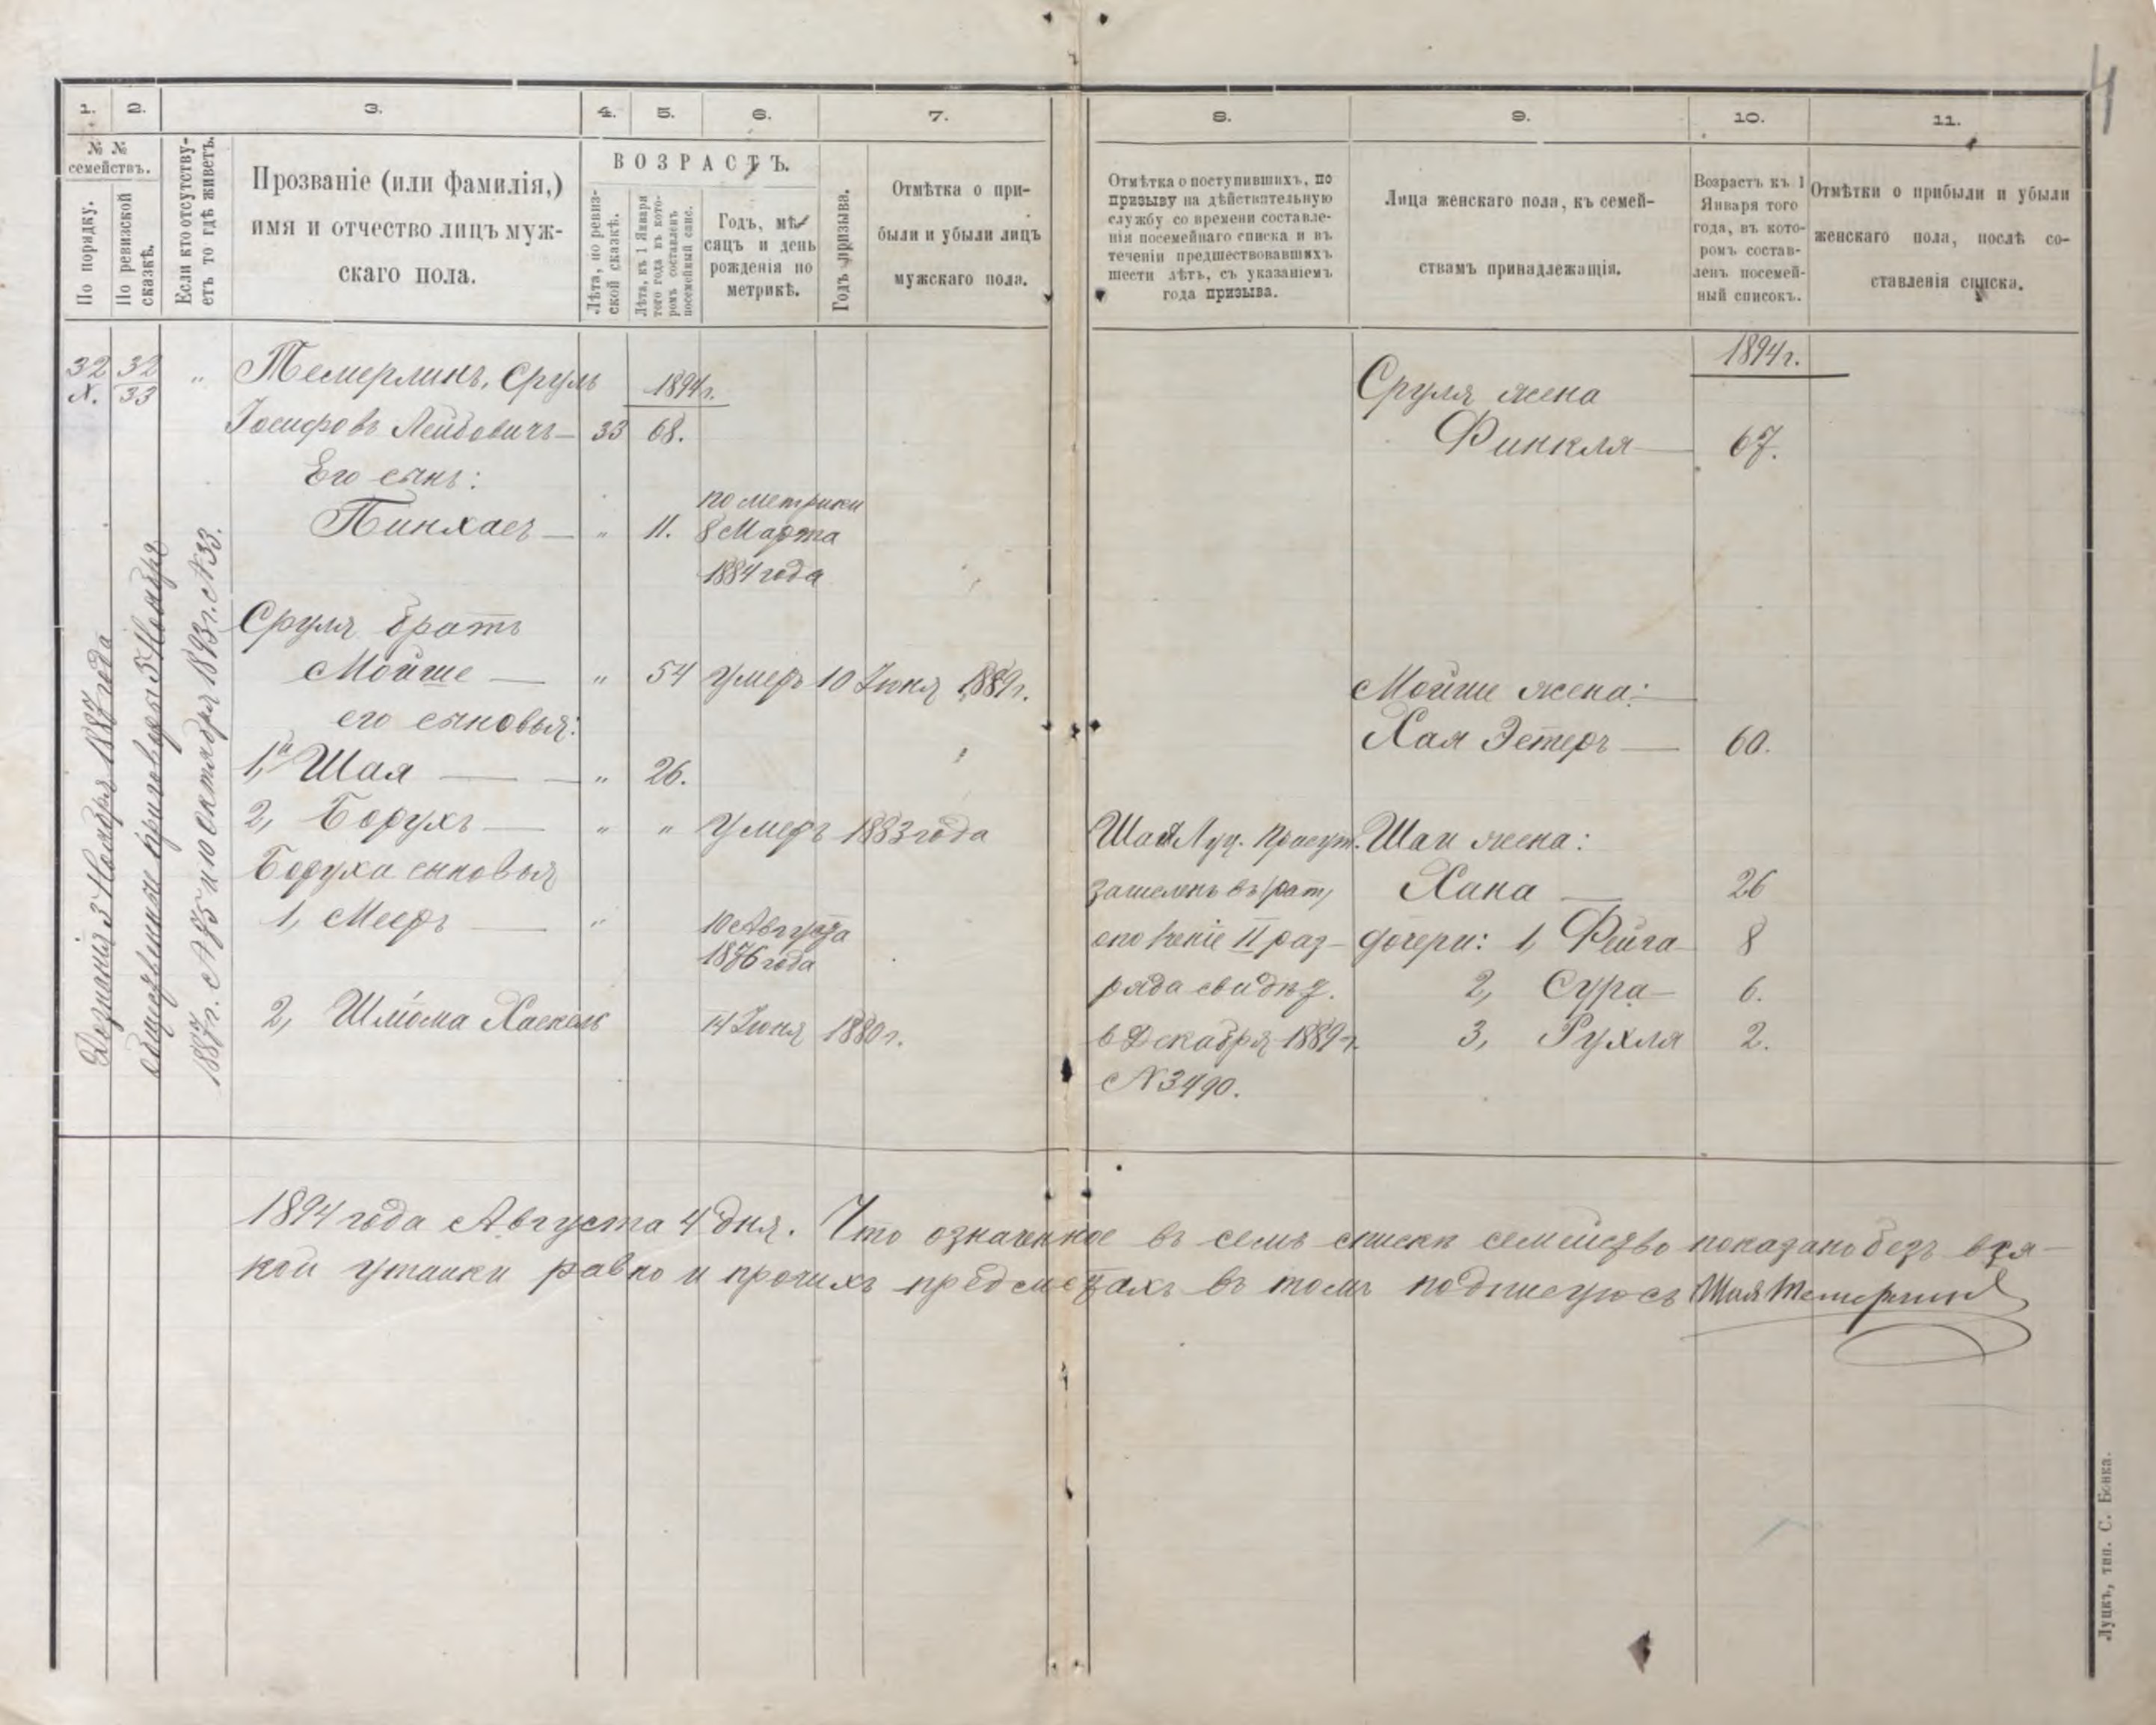 4
1. 2. 3. 4. 5. 6. 7. 8. 9. 10. 11.
№ №
семействъ.
По порядку.
По ревизской
сказкѣ.
Если кто отсутству-
етъ то гдѣ живетъ.
Прозваніе (или фамилія,)
имя и отчество лицъ муж-
скаго пола.
ВОЗРАСТЪ.
Лѣта, по ревиз-
ской сказкѣ.
Лѣта, къ 1 Января
того года въ кото-
ромъ составленъ
посемейный спис.
Годъ, мѣ-
сяцъ и день
рожденія по
метрикѣ.
Годъ призыва.
Отмѣтка о при-
были и убыли лицъ
мужскаго пола.
Отмѣтка о поступившихъ, по
призыву на дѣйствительную
службу со времени составле-
нія посемейнаго списка и въ
теченіи предшествовавшихъ
шести лѣтъ, съ указаніемъ
года призыва.
Лица женскаго пола, къ семей-
ствамъ принадлежащія.
Возрастъ къ 1
Января того
года, въ кото-
ромъ состав-
ленъ посемей-
ный списокъ.
Отмѣтки о прибыли и убыли
женскаго пола, послѣ со-
ставленія списка.
32 32 „ Темерлинъ, Сруль 1894г.
Х. 33
Іосифовъ Лейбовичъ — 33 68.
Его сынъ:
Пинхасъ — „ 11. по метрики
8 Марта
1884 года
Сруля братъ
Мойше — „ 54 умеръ 10 Іюня 1889г.
его сыновья:
1, Шая — „ 26.
2, Борухъ — „ „ Умеръ 1883 года
Боруха сыновья
1, Мееръ — „ 10 Августа
1876 года
2, Шлiома Хаскель 14 Іюня 1880г.
Дознанія 3 Ноября 1887 года
общественные приговоры 5 Ноября
1887г. № 75 и 10 Октября 1893г. № 33.
1894г.
Сруля жена
Финкля — 67.
Мойше жена:
Хая Эстеръ — 60.
Шая Луц. Присут.
зачисленъ въ рат,
ополченіе II раз-
ряда свидѣт.
6 Декабря 1889г.
№ 3490.
Шаи жена:
Хана — 26
дочери: 1, Фейга — 8
2, Сура — 6.
3, Рухля 2.
1894 года Августа 4 дня. Что означенное въ семъ списки семейство показано безъ вся-
кой утайки равно и прочихъ предметахъ въ томъ подписуюсъ Шая Темерлинъ
Луцкъ, тип. С. Бонка.